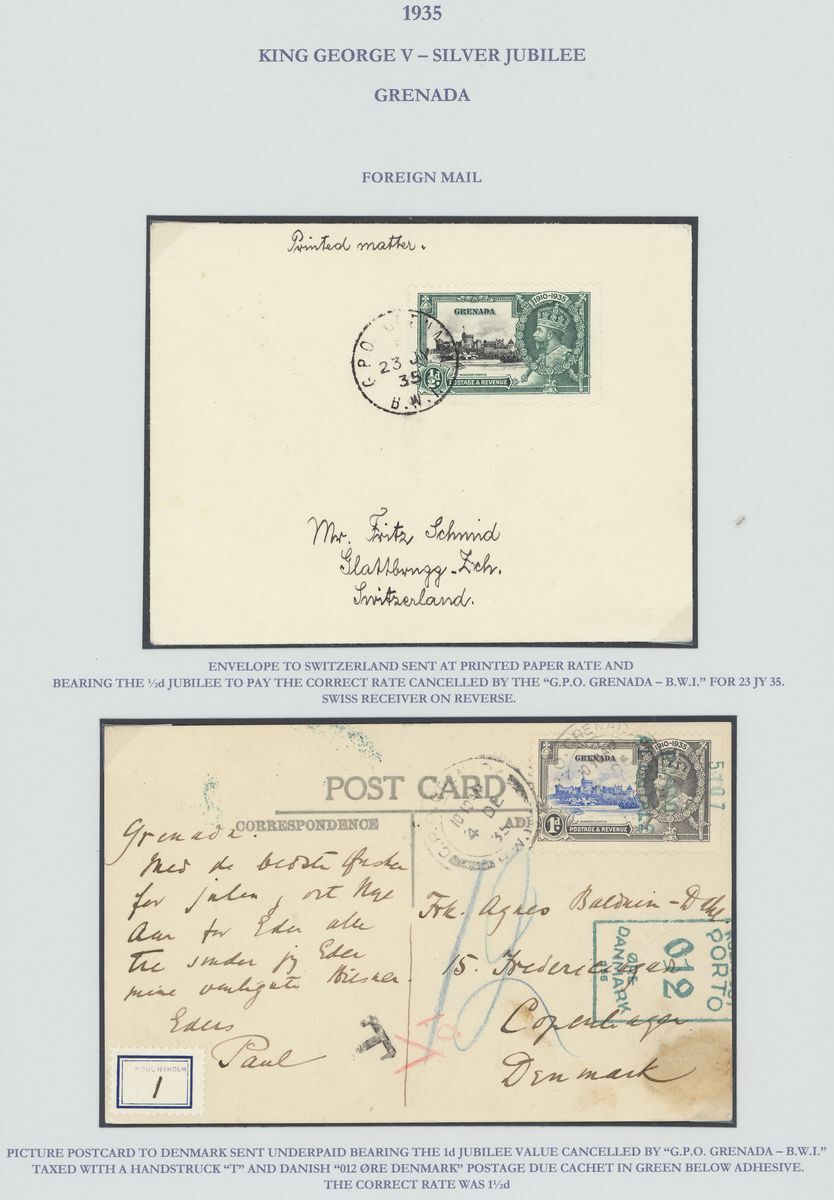 1935
KING GEORGE V – SILVER JUBILEE
GRENADA
FOREIGN MAIL
Printed matter.
1910-1935
GRENADA
WINDSOR CASTLE
½d
POSTAGE & REVENUE
G.P.O. GRENADA
23 JY
35
B.W.I.
Mr. Fritz Schmid
Glattbrugg-Zch.
Switzerland.
ENVELOPE TO SWITZERLAND SENT AT PRINTED PAPER RATE AND
BEARING THE ½d JUBILEE TO PAY THE CORRECT RATE CANCELLED BY THE “G.P.O. GRENADA – B.W.I.” FOR 23 JY 35.
SWISS RECEIVER ON REVERSE.
POST CARD
CORRESPONDENCE
AD
4 DE
35
GRENADA
1910-1935
GRENADA
WINDSOR CASTLE
1d
POSTAGE & REVENUE
5107
Grenada.
Med de bedste Ønsker
for julen, ort Nye
Aar for Eder alle
Tre sender jeg Eder
mine venligste Hilsner.
Eders
Paul
Frk. Agnes Baldwin-
15. Fredericiagade
Copenhagen
Denmark
12
T
PORTO
012
ØRE
DANMARK
POUL NYHOLM
1
PICTURE POSTCARD TO DENMARK SENT UNDERPAID BEARING THE 1d JUBILEE VALUE CANCELLED BY “G.P.O. GRENADA – B.W.I.”
TAXED WITH A HANDSTRUCK “T” AND DANISH “012 ØRE DENMARK” POSTAGE DUE CACHET IN GREEN BELOW ADHESIVE.
THE CORRECT RATE WAS 1½d